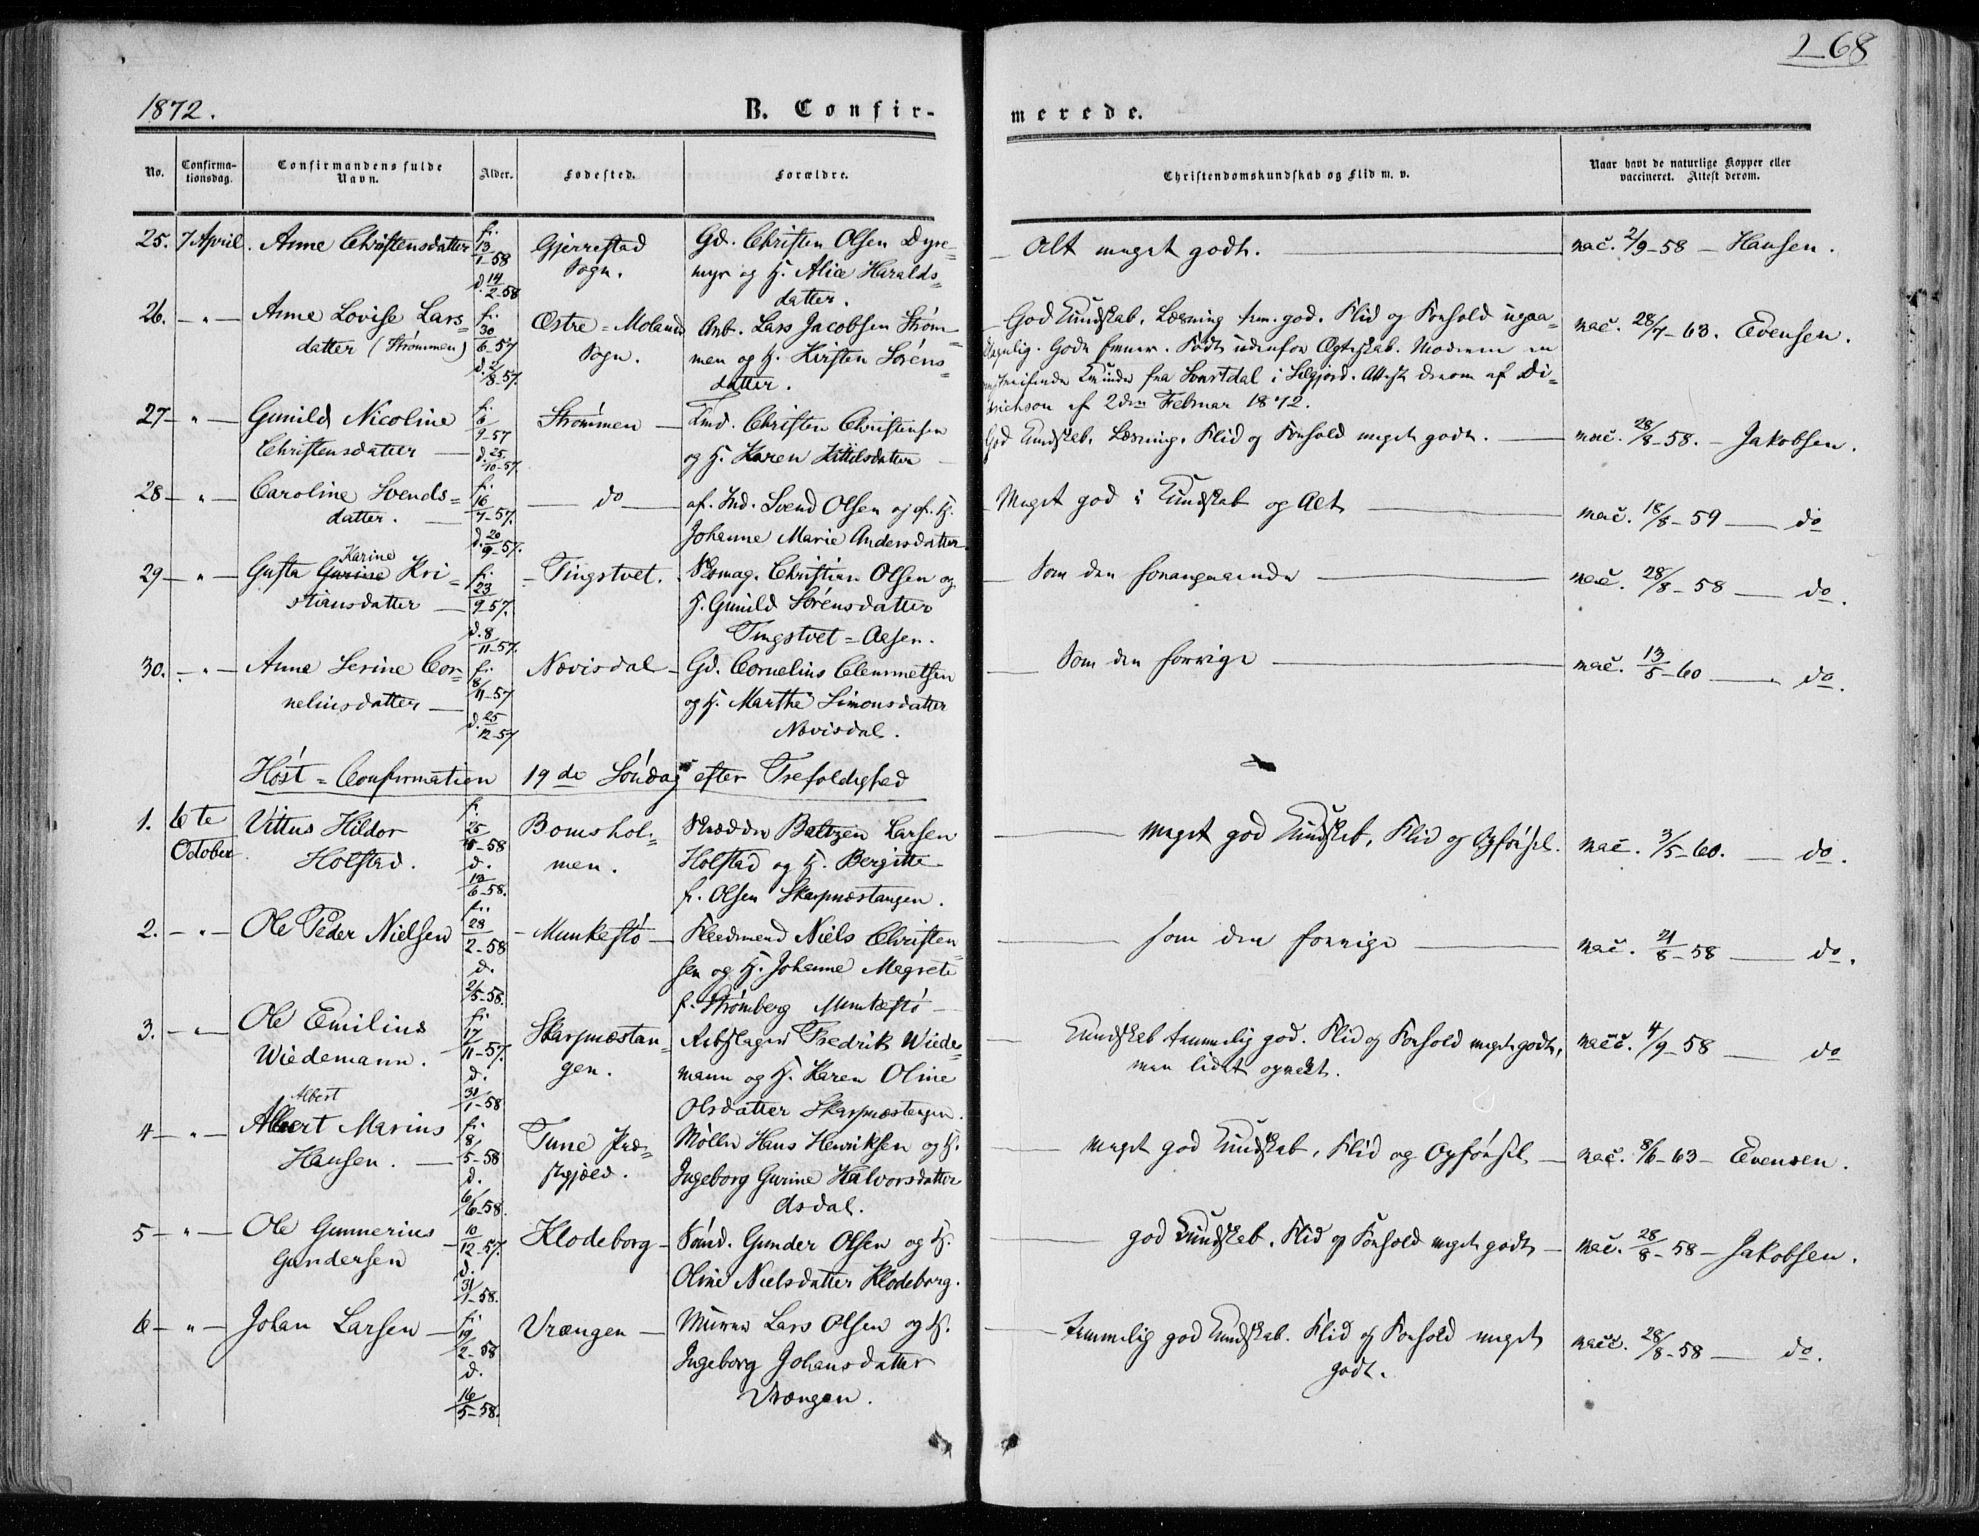 268
1872.
B. Confir-
merede.
No.
Confirma-
tionsdag.
Confirmandens fulde
Navn.
Alder.
Fødested.
Forældre.
Christendomskundskab og Flid m. v.
Naar havt de naturlige Kopper eller
vaccineret. Attest derom.
25. 7 April. Anne Christensdatter f. 13/1-58 Gjerrestad Gd. Christen Olsen Dyre- Alt meget godt. vac. 2/9-58 - Hansen.
d. 14/2-58 Sogn. myr og H. Alice Haralds-
datter.
26. - " - Anne Lovise Lars- f. 30/6-57 Østre-Moland Arb. Lars Jacobsen Strøm- God Kundskab. Læsning tem. god. Flid og Forhold upaa- vac. 28/7-63. Evensen.
datter (Strømmen) d. 2/8-57. Sogn. men og H. Kirsten Sørens- klagelig. Gode Evner. Født udenfor Ægteskab. Moderen en
datter. Kvinde fra i Seljord. Attest derom af Di-
af 2den Februar 1872.
27 - " - Gunild Nicoline f. 6/9-57 Strømmen Christen Christensen God Kundskab, Læsning, Flid og Forhold meget godt. vac. 28/8-58. - Jakobsen.
Christensdatter d. 25/10-57. og H. Karen Kittilsdatter
28 - " - Caroline Svends- f. 16/7-57. do af. Ind. Svend Olsen og af. H. Meget god i Kundskab og Alt vac. 18/8-59 do
datter. d. 20/9-57. Johanne Marie Andersdatter
Karine
29 - " - Gusta Gurine Kri- f. 23/9-57. Tingstvet. Skomag. Christian Olsen og Som den forangaaende vac. 28/8-58 do.
stiansdatter d. 8/11-57. H. Gunild Sørensdatter
Tingstvet-Aasen.
30. - " - Anne Serine Cor- f. 8/11-57 Nævisdal Gd. Cornelius Clemmetsen Som den forrige vac. 13/5-60 do.
neliusdatter d. 25/12-57 og H. Marthe Simonsdatter
Nævisdal.
Høst-Confirmation 19de Søndag efter Trefoldighed
1. 6te Vittus Hildor f. 25/5-58 Bomshol- Skrædder Baltzen Larsen Meget god Kundskab, Flid og Opførsel. vac. 3/5-60. do.
October. Holstad. d. 13/6-58. men. Holstad og H. Bergitte
f. Olsen Skarpnæstangen.
2. - " - Ole Peder Nielsen f. 28/2-58 Munkestø Niels Christen- som den forrige vac. 21/8-58 do.
d. 2/5-58. sen og H. Johanne Magrete
f. Strømberg Munkestø
3. - " - Ole Emilius f. 17/11-57. Skarpnæstan- Fredrik Wiede- Kundskab temmelig god. Flid og Forhold meget godt, vacc. 4/9-58 do
Wiedemann. d. 31/1-58 gen. mann og H. Karen Oline men lidet opvakt.
Olsdatter Skarpnæstangen.
Albert
4 - " - Albert Marius f. 8/5-58 Tune Præ- Møller Hans Henriksen og H. Meget god Kundskab, Flid og Opførsel vac. 8/6-63 - Evensen.
Hansen. d. 6/6-58. stegjeld. Ingeborg Gurine Halvorsdatter
Asdal.
5 - " - Ole Gunnerius 10/12-57. Klodeborg Sømd. Gunder Olsen og H. god Kundskab. Flid og Forhold meget godt vac. 28/8-58 - Jakobsen.
Gundersen d. 31/1-58. Oline Nielsdatter Klodeborg.
6 - " - Johan Larsen f. 19/2-58 Vrængen Murer Lars Olsen og H. temmelig god Kundskab. Flid og Forhold meget vacc. 28/8-58 do.
d. 16/5-58. Ingeborg Johansdatter godt.
Vrængen.